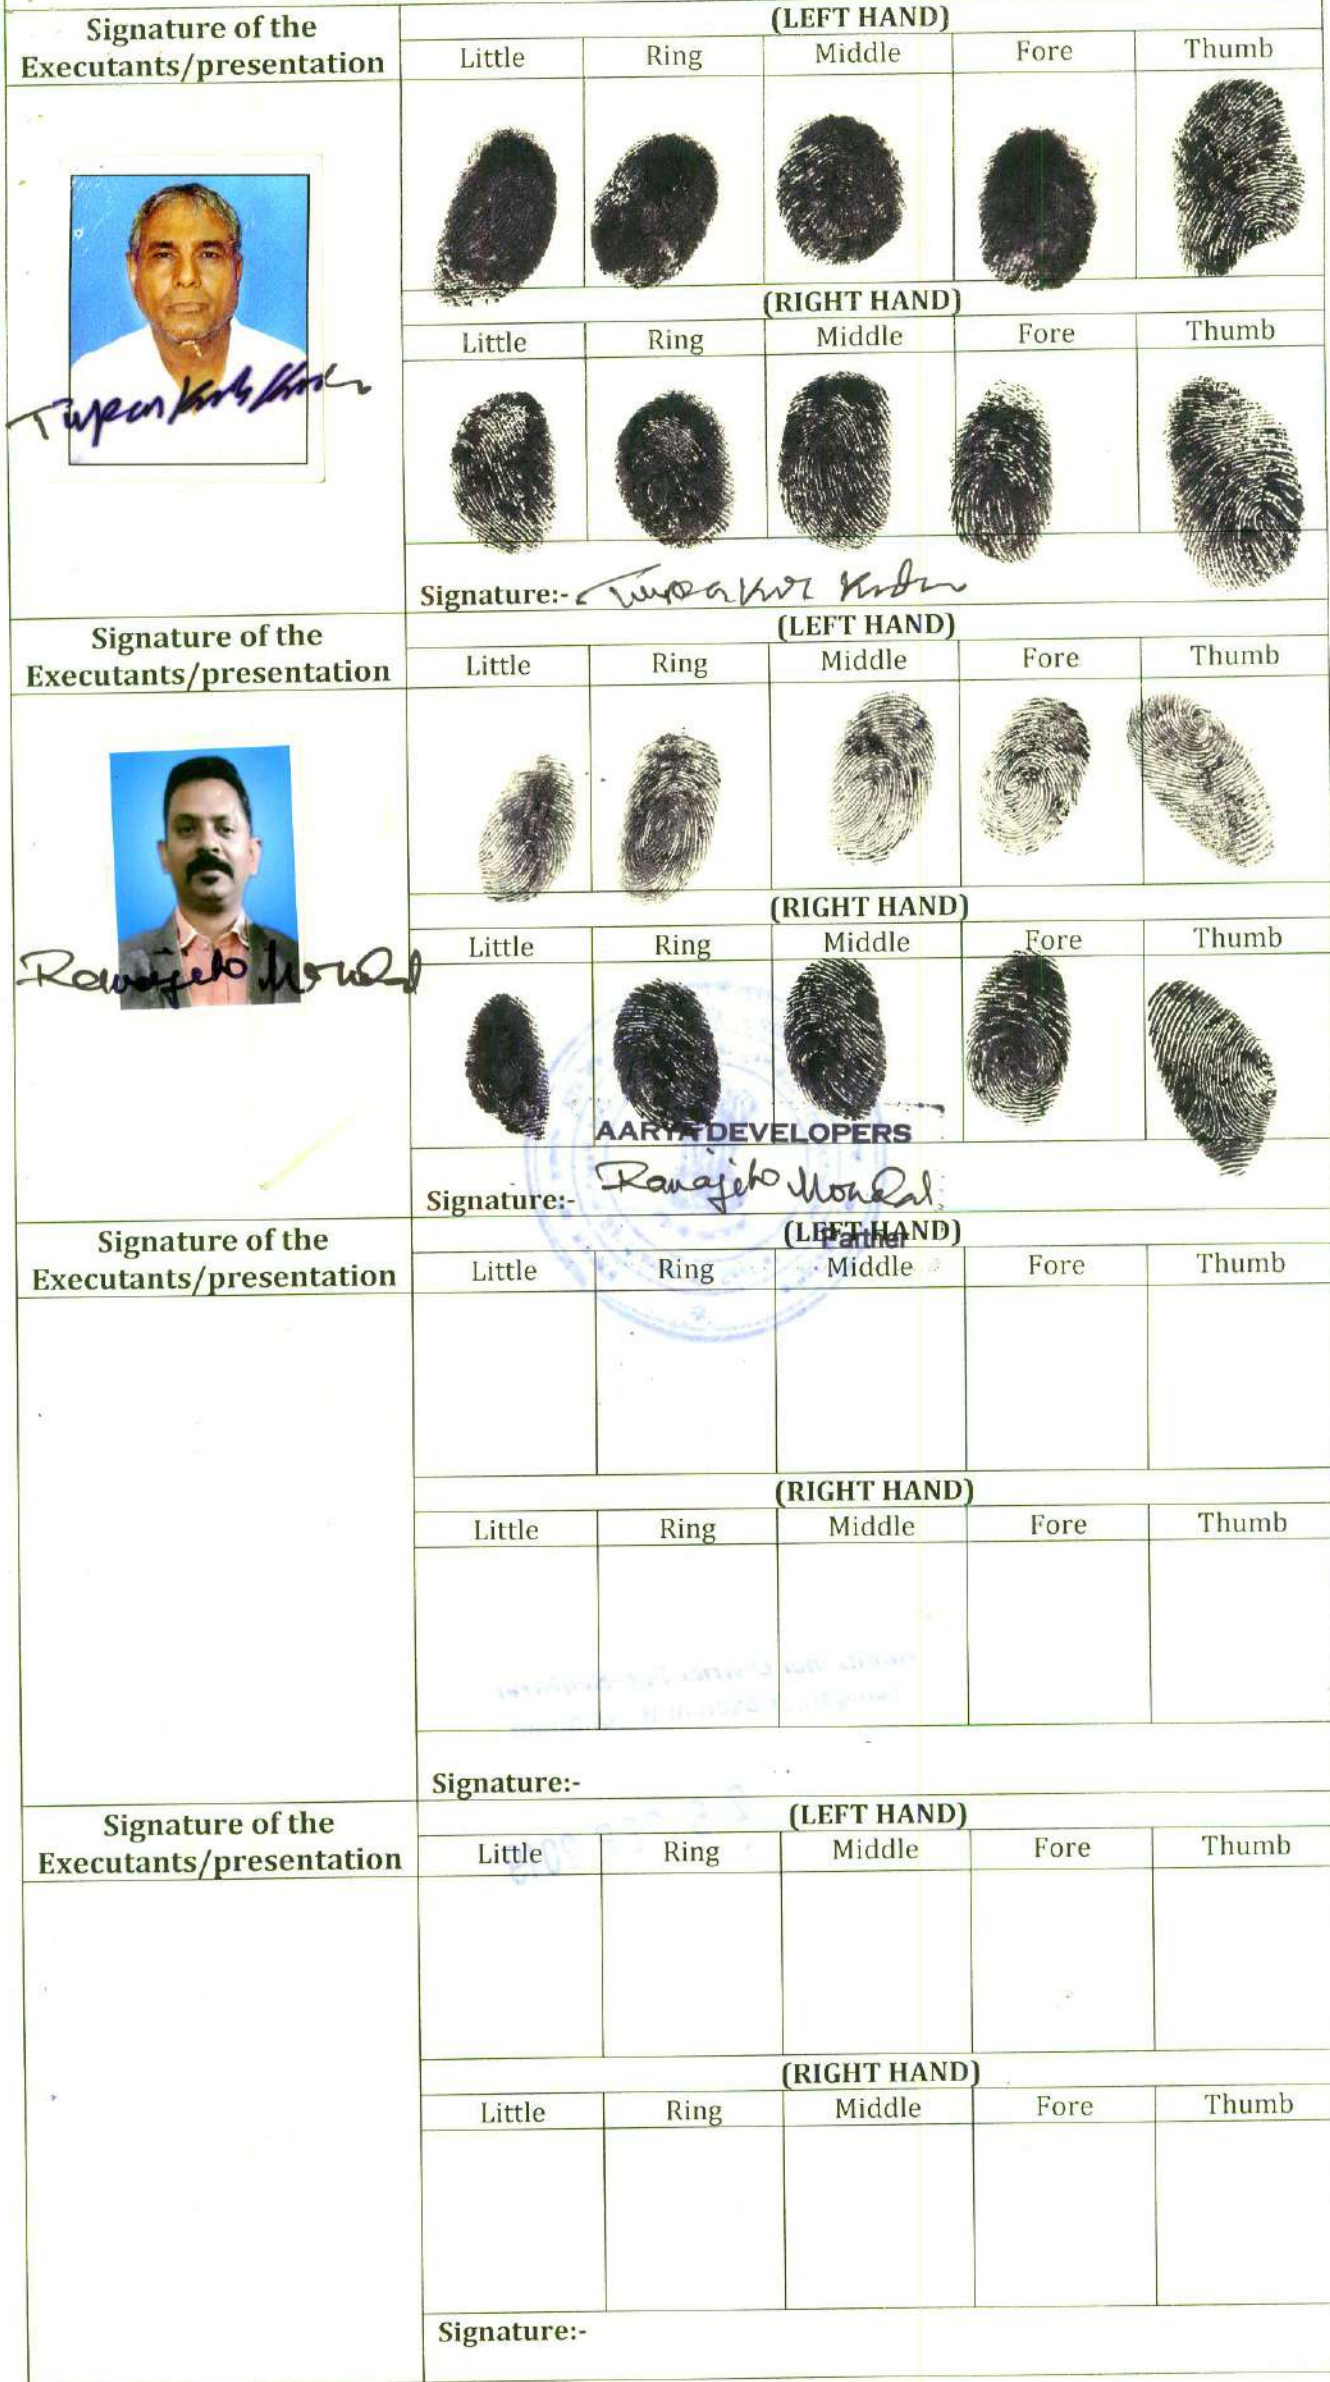 Signature of the
Executants/presentation
(LEFT HAND)
Little Ring Middle Fore Thumb
(RIGHT HAND)
Little Ring Middle Fore Thumb
Signature:-
Signature of the
Executants/presentation
(LEFT HAND)
Little Ring Middle Fore Thumb
Ranajeto Mondal
(RIGHT HAND)
Little Ring Middle Fore Thumb
AARYA DEVELOPERS
Signature:- Ranajeto Mondal
Partner
Signature of the
Executants/presentation
(LEFT HAND)
Little Ring Middle Fore Thumb
(RIGHT HAND)
Little Ring Middle Fore Thumb
Signature:-
Signature of the
Executants/presentation
(LEFT HAND)
Little Ring Middle Fore Thumb
(RIGHT HAND)
Little Ring Middle Fore Thumb
Signature:-